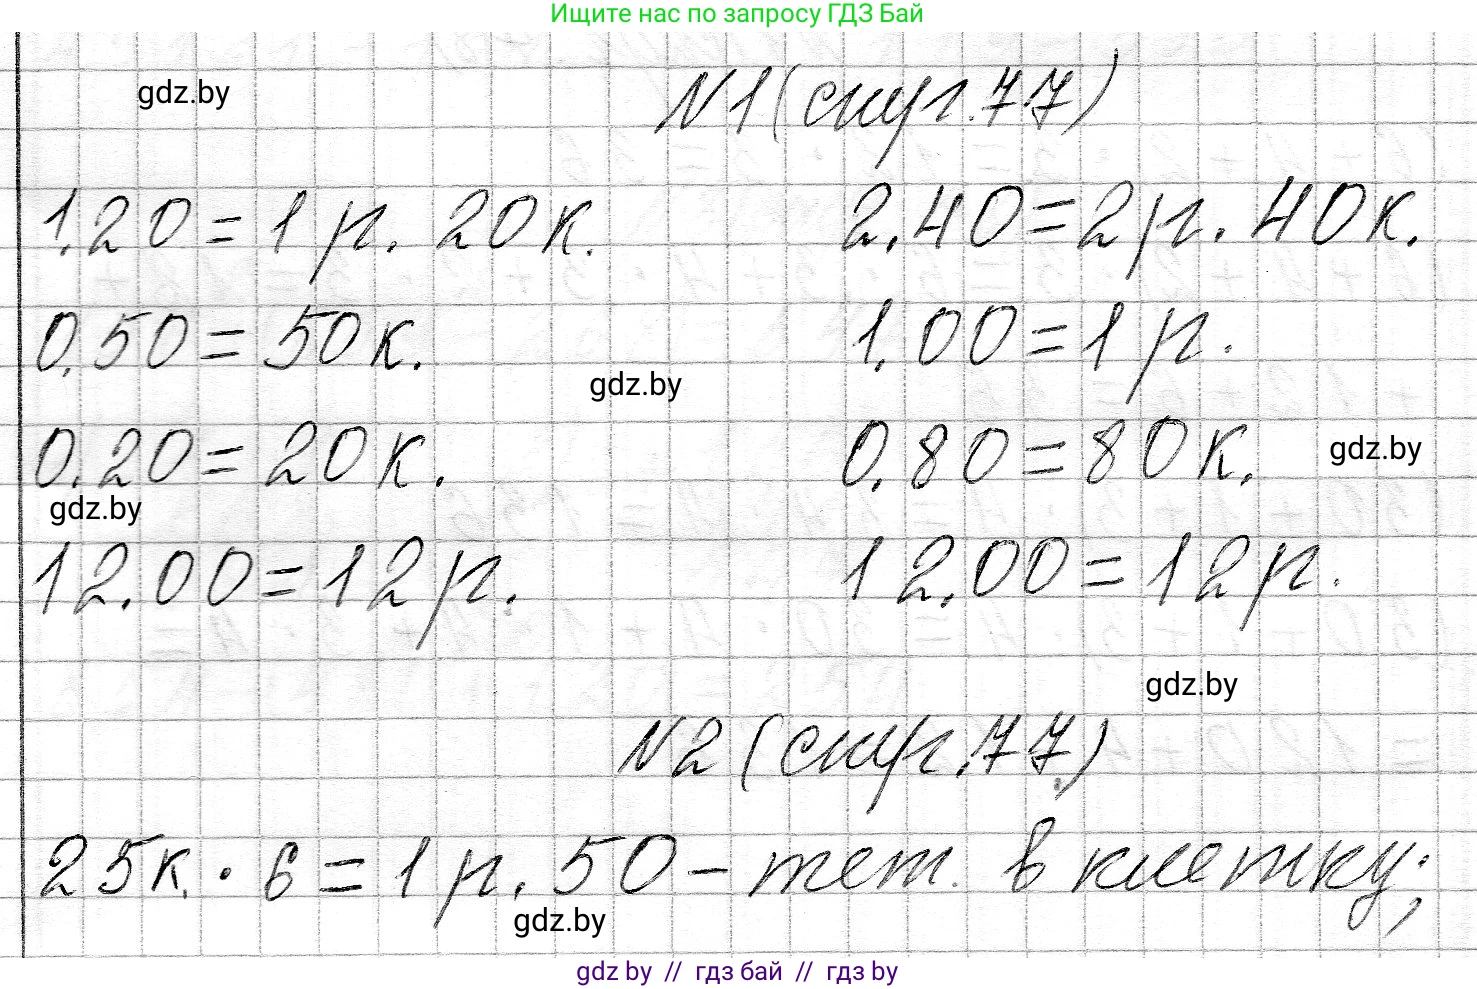 Ищите нас по запросу ГДЗ Бай
gdz.by
N1 (стр. 77)
1,20 = 1 р. 20 к. 2,40 = 2 р. 40 к.
0,50 = 50 к. 1,00 = 1 р.
gdz.by
0,20 = 20 к. 0,80 = 80 к.
gdz.by
gdz.by
12,00 = 12 р. 12,00 = 12 р.
gdz.by
N2 (стр. 77)
25 к. · 6 = 1 р. 50 – тет. в клетку;
gdz.by
gdz by // гдз бай // гдз by